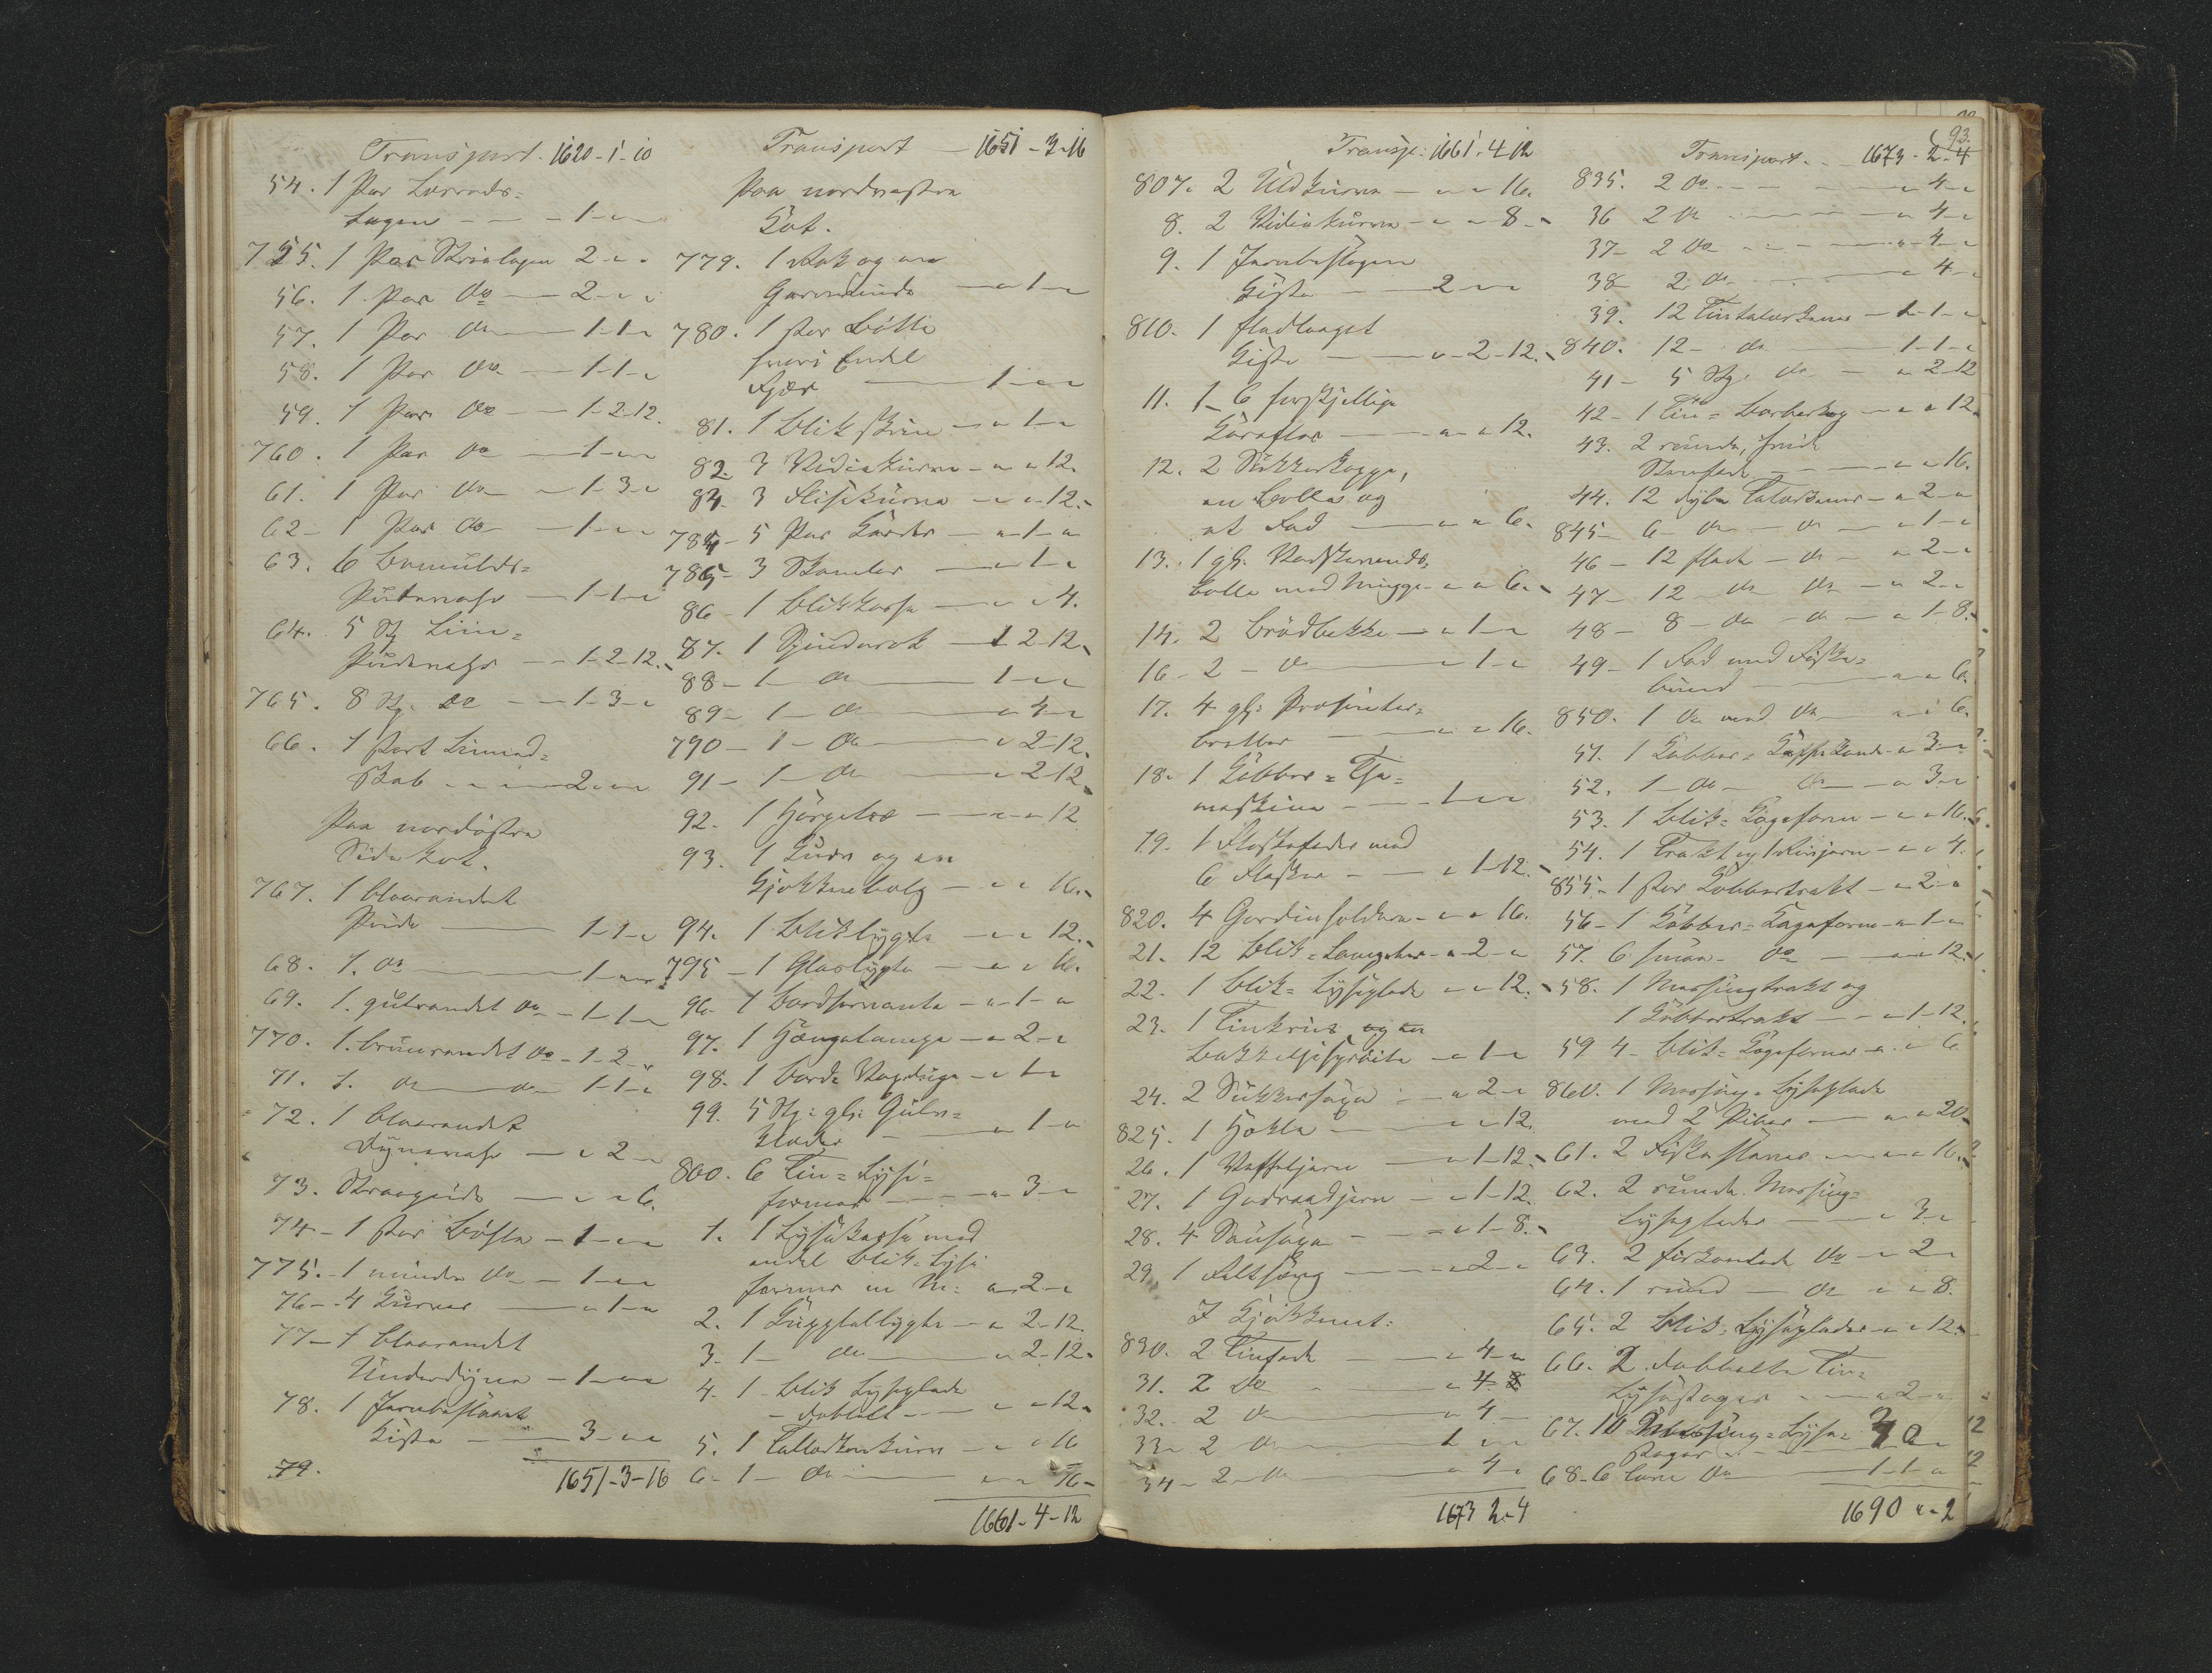 Transport. 1620-1-10
54. 1 Par Lærreds-
Lagen - - - 1 - " - "
755. 1 Par Strielagen 2 - " - "
56. 1 Par do - 2 - " - "
57. 1 Par do - 1-1-"
58. 1 Par do - 1-1-"
59. 1 Par do - 1-2-12.
760. 1 Par do - 1 - " - "
61. 1 Par do - 1-3-"
62 - 1 Par do - 1 - " - "
63. 6 Bomulds-
Pudevahr - 1-1-"
64. 5 St Liin-
Pudevahr - 1-2-12.
765. 8 St. do - 1-3-"
66. 1 stort Linned-
Skab - 2 - " - "
Paa nordöstre
Side Loft.
767. 1 blaarandet
Pude - 1-1-"
68. 1. do - 1 - " - "
69. 1. gulrandet do - 1-1-"
770. 1. brunrandet do - 1-2-"
71. 1. do do - 1-1-"
72. 1 blaarandet
Dynevahr - " 2 - "
73. Straapude - " - " 6.
74 - 1 stor Bötte - 1 - " - "
775. - 1 mindre do - 1 - " - "
76 - 4 Kurver - " - 1 - "
77 - 1 blaarandet
Underdyne - 1 - " - "
78. 1 Jernbeslaaet
Kiste - 3 - " - "
79.
1651-3-16
Transport - 1651-3-16
Paa nordvestre
Loft.
779. 1 Rok og en
Garnvinde - " 1 - "
780. 1 stor Bötte
hvori Endel
Fjær - 1 - " - "
81. 1 Blikskrin - " 1 - "
82. 3 Vidiekurve - " " 12.
83. 3 Flisekurve - " " 12.
784 - 5 Par Karder - " - 1 - "
785 - 3 Skamler - " 1 - "
86 - 1 Blikkasse - " " 4.
87. 1 Spinderok - 1 2-12.
88 - 1 - do - 1 - " - "
89 - 1 - do - " 4 - "
790 - 1 - do - " 2-12.
91 - 1 - do - " 2-12
92. 1 Hörgetræ - " - " 12
93. 1 Luur og en
Kjökkenbelg - " " 16.
94. 1 Bliklygte - " " 12.
795 - 1 Glaslygte - " " 16.
96. 1 Bordservante - " - 1 - "
97. 1 Hængelampe - " 2 - "
98. 1 Bord- - " 1 - "
99. 5 St: gl: Gulv-
klæder - " 1 - "
800. 6 Tin-Lyse-
former - " 3 - "
1. 1 Lysekasse med
endel Blik-Lyse
former m M: " - 2 - "
2. 1 Kuppellygte - " 2-12.
3. 1 - do - " 2-12.
4. 1 Blik Lyseplade
- dobbelt - " " 12.
5. 1 Tallerkenkurv - " " 16
6 - 1 - do - " " 16 -
1661-4-12
Transp: 1661. 4 12
807. 2 Uldkurve - " " 16.
8. 2 Vidiekurve - " " 8.
9. 1 Jernbeslagen
Kiste - 2 - " - "
810. 1 fladlaaget
Kiste - " - 2-12.
11. 1 - 6 forskjellige
Karafler - " " 12.
12. 2 Sukkerkoppe,
en Bolle og
et Fad - " " 6.
13. 1 gl.
bolle med Mugge - " " 6.
14. 2 Brödbakke - " 1 - "
16 - 2 - do - " 1 - "
17. 4 gl: Presenter-
bretter - " " 16.
18. 1 Kobber-The-
maskine - 1 - " - "
19. 1 Flaskefoder med
6 Flasker - " 1-12.
820. 4 Gardinholdere - " " 16.
21. 12 Blik-Lampetter - " 2 - "
22. 1 Blik-Lyseplade - " " 12.
23. 1 Tinkrus og en
Bakkelsesprøite - " 1 - "
24. 2 Sukkersaxe - " 2 - "
825. 1 Hekle - " " 12.
26. 1 Vaffeljern - " 1-12.
27. 1 Goderaadjern - " 1-12.
28. 4 Sausaxe - " 1-8.
29. 1 Feltseng - " 2 - "
I Kjökkenet:
830. 2 Tinfade - " 4 - "
31. 2 do - " 4
32. 2 do - " 4 -
33 - 2 do - 1 - " - "
34 - 2 - do - " 4 - "
1673 2-4
93.
Transport. - 1673-2-4
835. 2 do - " 4 - "
36 2 do - " 4 - "
37 - 2 do - " 4 - "
38 2 do - " 4 - "
39. 12 Tintalerkener - 1-1-"
840. 12 - do - 1-1-"
41 - 5 St. do - " 2-12
42 - 1 Tin-Barber - " " 12.
43. 2 runde, hvide
Steenfade - " " 16.
44. 12 dybe Talerkener - " 2 - "
845 - 6 - do - do - " 1 - "
46 - 12 flade - do - " 2 - "
47 - 12 do do - " 2 - "
48 - 8 - do - do - " 1-8.
49 - 1 Fad med Fiske-
bund - " " 6.
850. 1 do med do " " 6.
51. 1 Kobber-Kaffekande " 3 - "
52. 1 - do - do - " 3 - "
53. 1 Blik-Kageform - " " 16.
54. 1 Trakt og 1 Rivjern - " " 4.
855 - 1 stor Kobbertrakt - " 2 - "
56 - 1 Kobber-Kageform - " 1 - "
57. 6 smaa - do - " " 12.
58. 1 Messingtrakt og
1 Kobbertrakt - " 1-12.
59 4 - Blik-Kageformer - " " 6
860. 1 Messing-Lyseplade
med 2 Piber - " " 20.
61. 2 Fiskeslaaer - " " 16.
62. 2 runde Messing-
Lyseplader - " 3 - "
63. 2 firkantede do - " 2 -
64. 1 rund - do " " 8.
65. 2 Blik-Lyseplader - " " 12.
66. 2 dobbelte Tin-
Lysestager - " 2 - "
67. 10 Messing-Lyse-
stager -
68 - 6 Tin do - 1-1-"
1690 " - 2